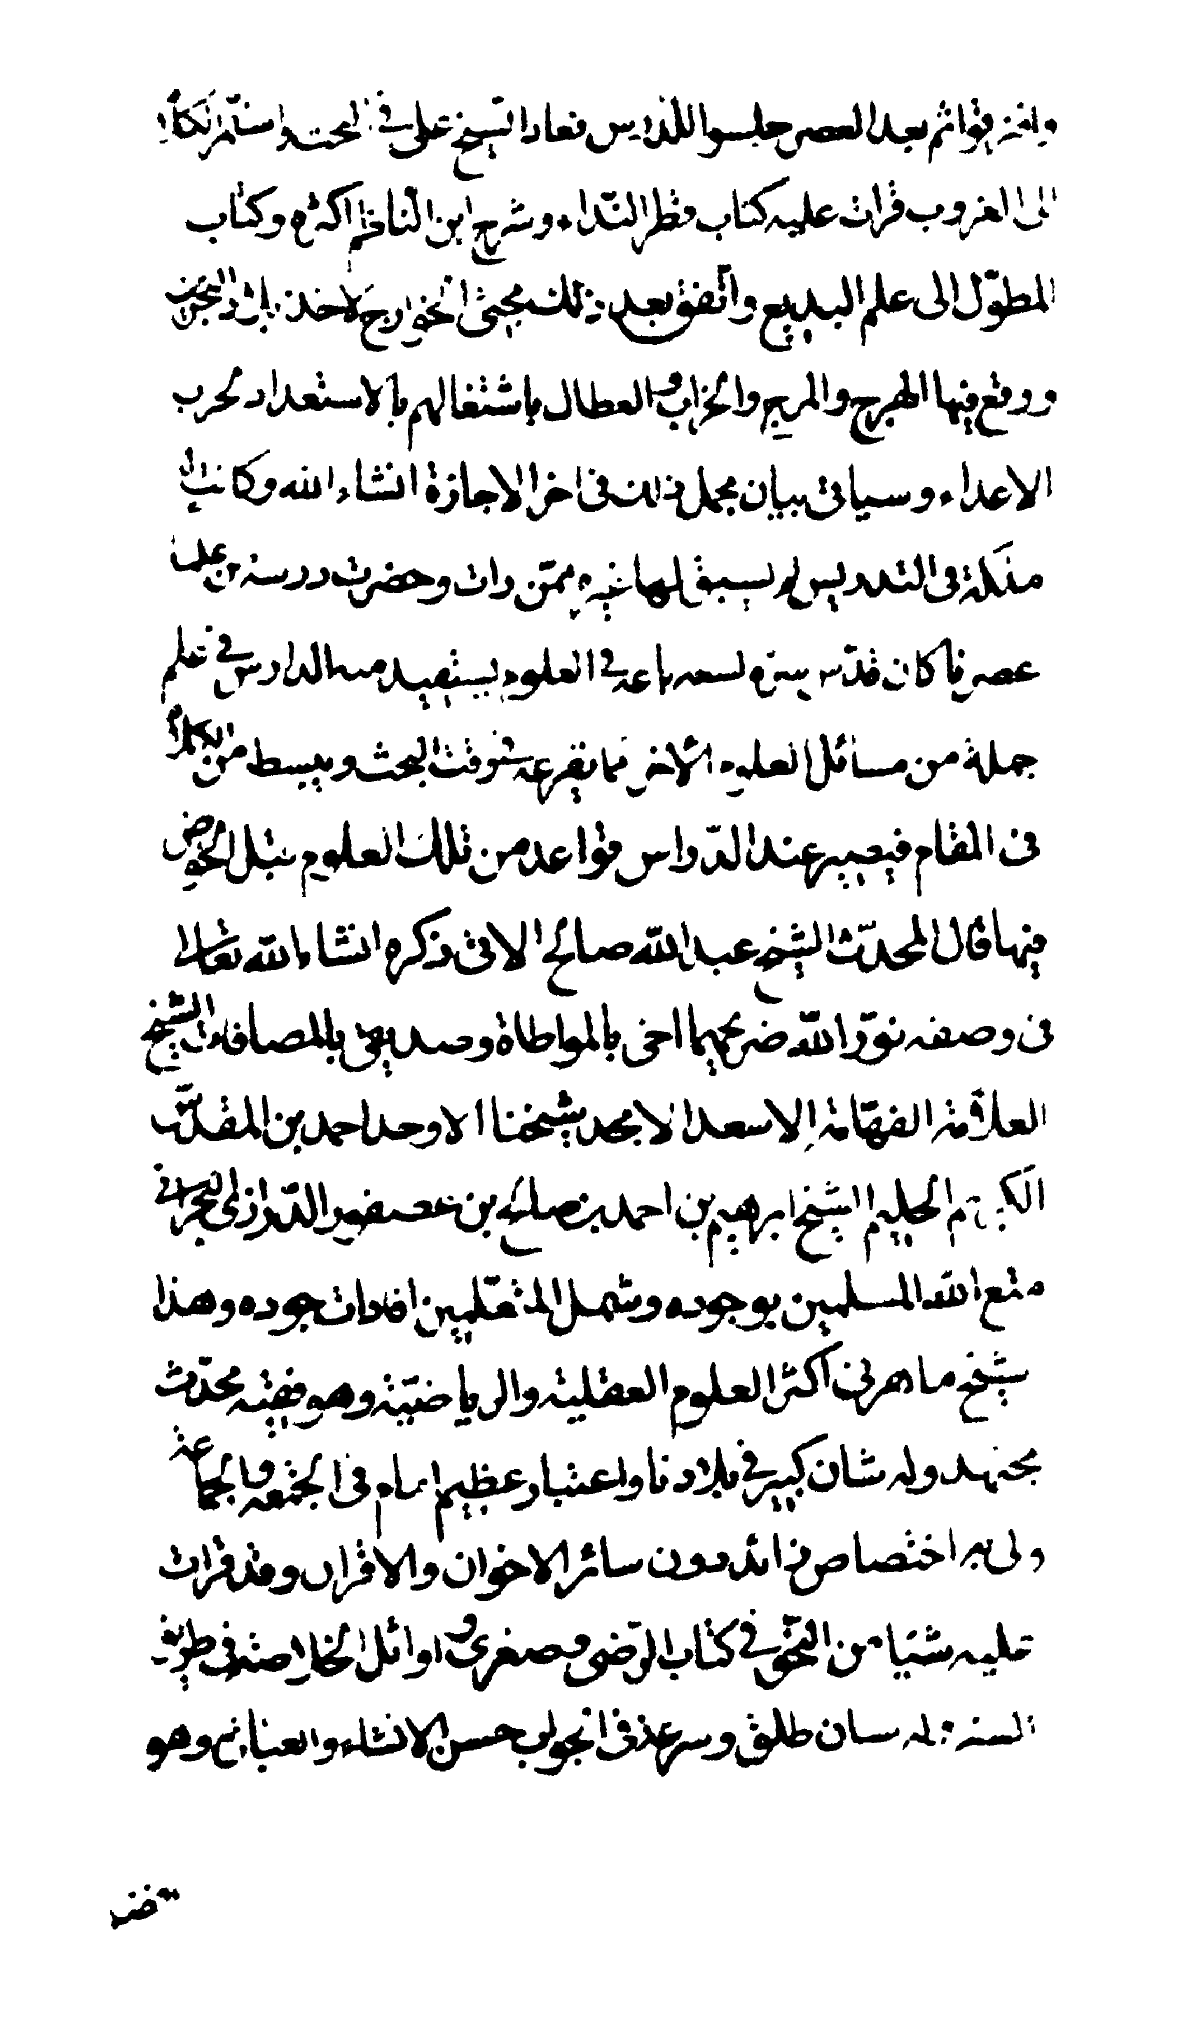 وافترقوا ثم بعد العصر جلسوا للدرس فعاد الشيخ علي في البحث واستمر الكلام
الى الغروب قرات عليه كتاب قطر النداء وشرح ابن الناظم اكثره وكتاب
المطول الى علم البديع واتفق بعد ذلك مجيئ الخوارج لاخذ بلاد البحرين
ووقع فيها الهرج والمرج والخراب والعطال باشتغالهم بالاستعداد لحرب
الاعداء وسياتي بيان مجمل ذلك في اخر الاجازة انشاء الله وكانت له
ملكة في التدريس لم يسبق لها غيره ممن رات وحضرت درسه من علماء
عصره فاكان قدس سره لسعه باعه في العلوم يستفيد منه الدارس في علم
جملة من مسائل العلوم الاخر مما يفرعه وقت البحث ويبسط من الكلام
في المقام فيصير عند الدراس قواعد من تلك العلوم قبل الخوض
فيها قال المحدث الشيخ عبد الله صالح الاتي ذكره انشاء الله تعالى
في وصفه نور الله ضريحهما اخي بالمواطاة وصديقي بالمصافات الشيخ
العلامة الفهامة الاسعد الامجد شيخنا الاوحد احمد بن المقدس
الكريم الحليم الشيخ ابرهيم بن احمد بن صالح بن عصفور الدرازي البحراني
متع الله المسلمين بوجوده وشمل المتعلمين افادات جوده وهذا
شيخ ماهر في اكثر العلوم العقلية والرياضية وهو فقيه محدث
مجتهد وله شان كبير في بلادنا واعتبار عظيم امام في الجمعه والجماعة
ولي به اختصاص زائد دون سائر الاخوان والاقران وقد قرات
عليه شيئا من النحو في كتاب الرضي وصغرى واوائل الخلاصة في طريق
السنه وله لسان طلق وسرعة في الجواب حسن الانشاء والعبائر وهو